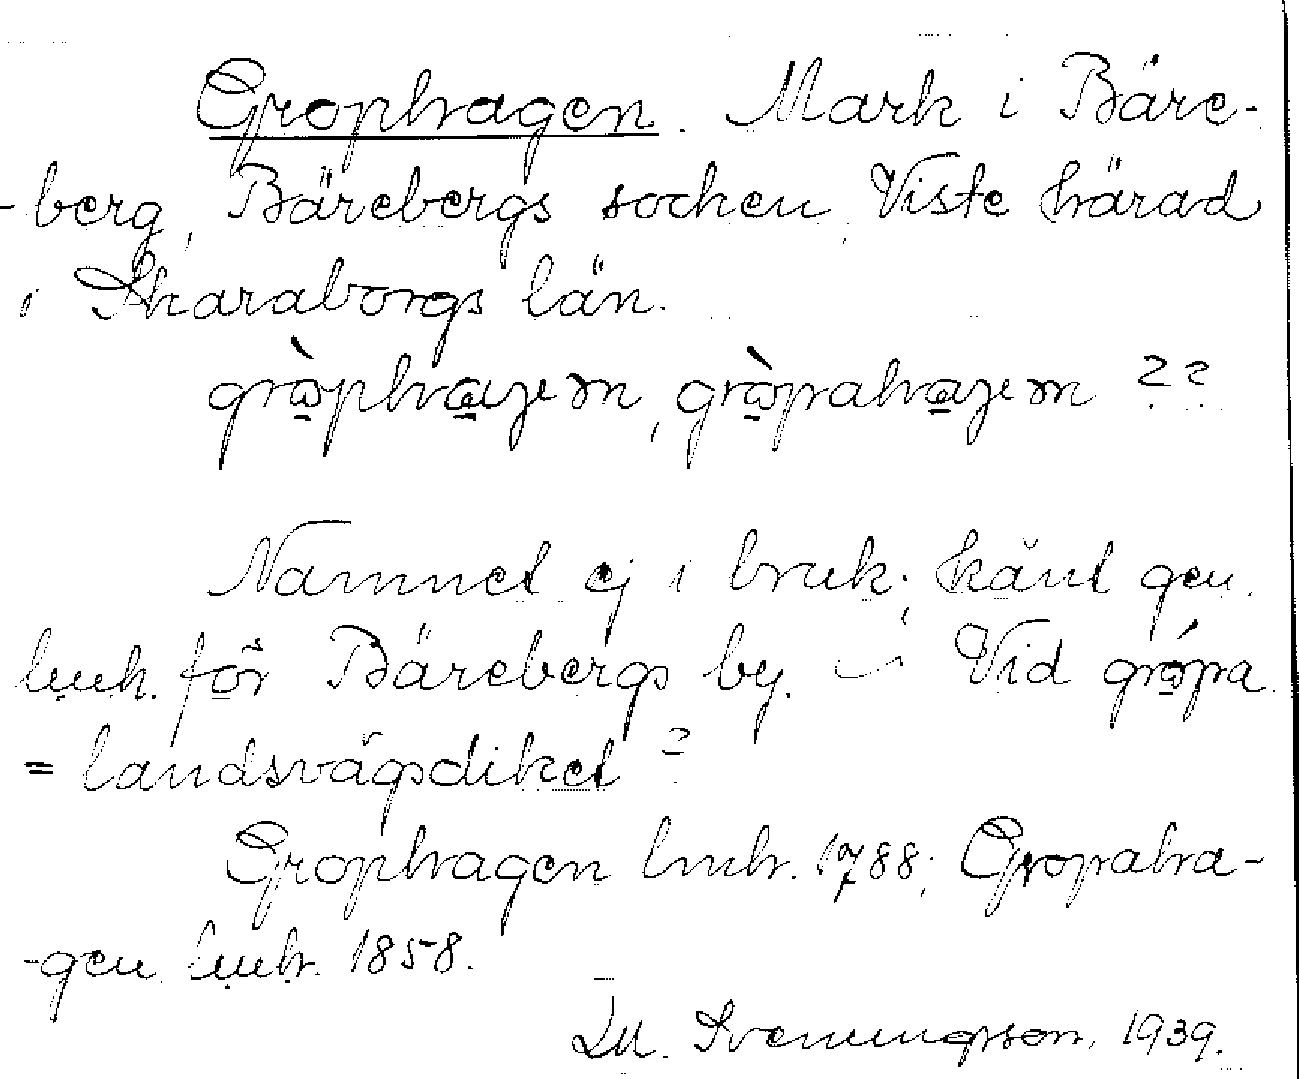 Grophagen. Mark i Bäre-
-berg, Bärebergs socken, Viste härad
i Skaraborgs län.
grὰphagen, grὰpahagen ??
Namnet ej i bruk; känt gen.
lmh. för Bärebergs by. Vid grópa
= landsvägsdiket?
Grophagen lmh. 1788; Gropaha-
-gen lmh. 1858.
Svenungsson, 1939.